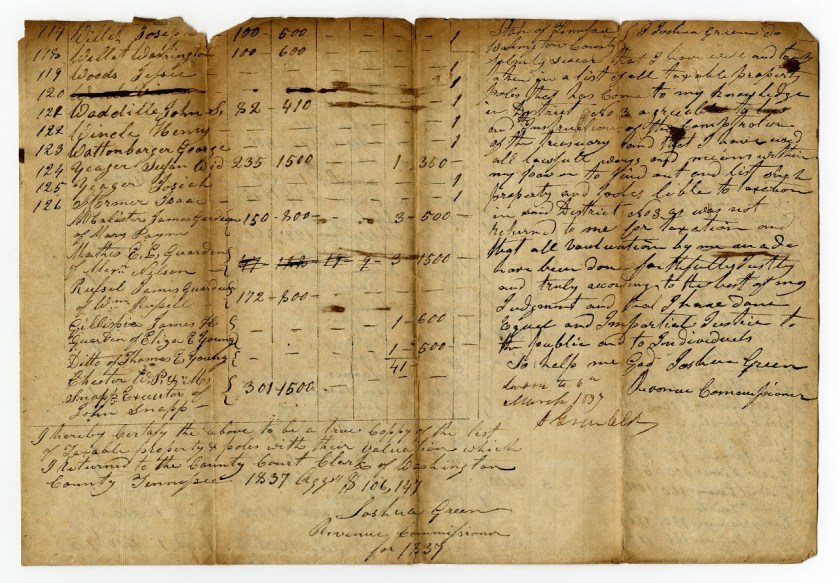 117 Willet Joseph - 100 - 500 - - - - 1
118 Willet Washington 100 - 600 - - - - 1
119 Woods Jessee - - - - - - 1
120
121 Waddille John S. 82 - 410 - - - - 1
122 Wincle Henry - - - - - - 1
123 Wattonberger George - - - - - - 1
124 Yeager Susan Wid 235 1500 - - 1 - 350 -
125 Yeager Josiah - - - - - - 1
126 Stormer Isaac - - - - - - 1
McAlister James Garden - 150 - 800 - - - 3 - 500 -
of Mary Payne
Mathes E. L. Guarden
of Nelson - 3 - 1500
Russel James Guarden
of Wm Russell 172 - 800 -
Gillispie James H
Guarden of Eliza E Young 1 - 600 -
Ditto of Thomas E Young 1 - 500 -
41 -
Chester W. P. & Mc
Snapp Executor of 301 - 1500 -
John Snapp -
I hereby Certify the above to be a true Copy of the list
of Taxable property & poles with their Valuation which
I Returned to the County Court Clerk of Washington
County Tennessee 1837 Agg't $ 106,147
Joshua Green
Revenue Commissioner
for 1837
State of Tennessee I Joshua Green do
Washington County
solemnly swear that I have well and truly
taken in a list of all taxable property
poles that has come to my knowledge
in District No 3 agreeable to law
and the Instructions of the Comptroler
of the treasury and that I have used
all lawfull ways and means within
my power to find out and list such
property and poles lible to taxation
in said District No 3 as was not
returned to me for taxation and
that all valuation by me made
have been done faithfully Justly
and truly according to the best of my
Judgment and that I have done
Equel and Impartial Justice to
the public and to Individuals
So help me God Joshua Green
Sworn to 6th Revonue Commissioner
March 1837